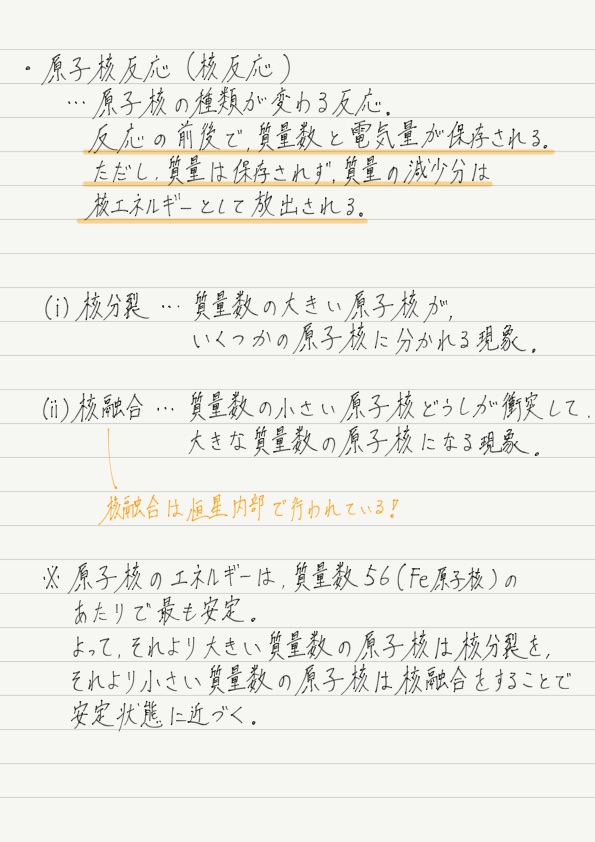 ・原子核反応（核反応）
… 原子核の種類が変わる反応.
反応の前後で,質量数と電気量が保存される。
ただし,質量は保存されず,質量の減少分は
核エネルギーとして放出される。
(i) 核分裂 … 質量数の大きい原子核が,
いくつかの原子核に分かれる現象。
(ii) 核融合 … 質量数の小さい原子核どうしが衝突して,
大きな質量数の原子核になる現象。
核融合は恒星内部で行われている!
※ 原子核のエネルギーは,質量数56(Fe原子核)の
あたりで最も安定。
よって,それより大きい質量数の原子核は核分裂を,
それより小さい質量数の原子核は核融合をすることで
安定状態に近づく。